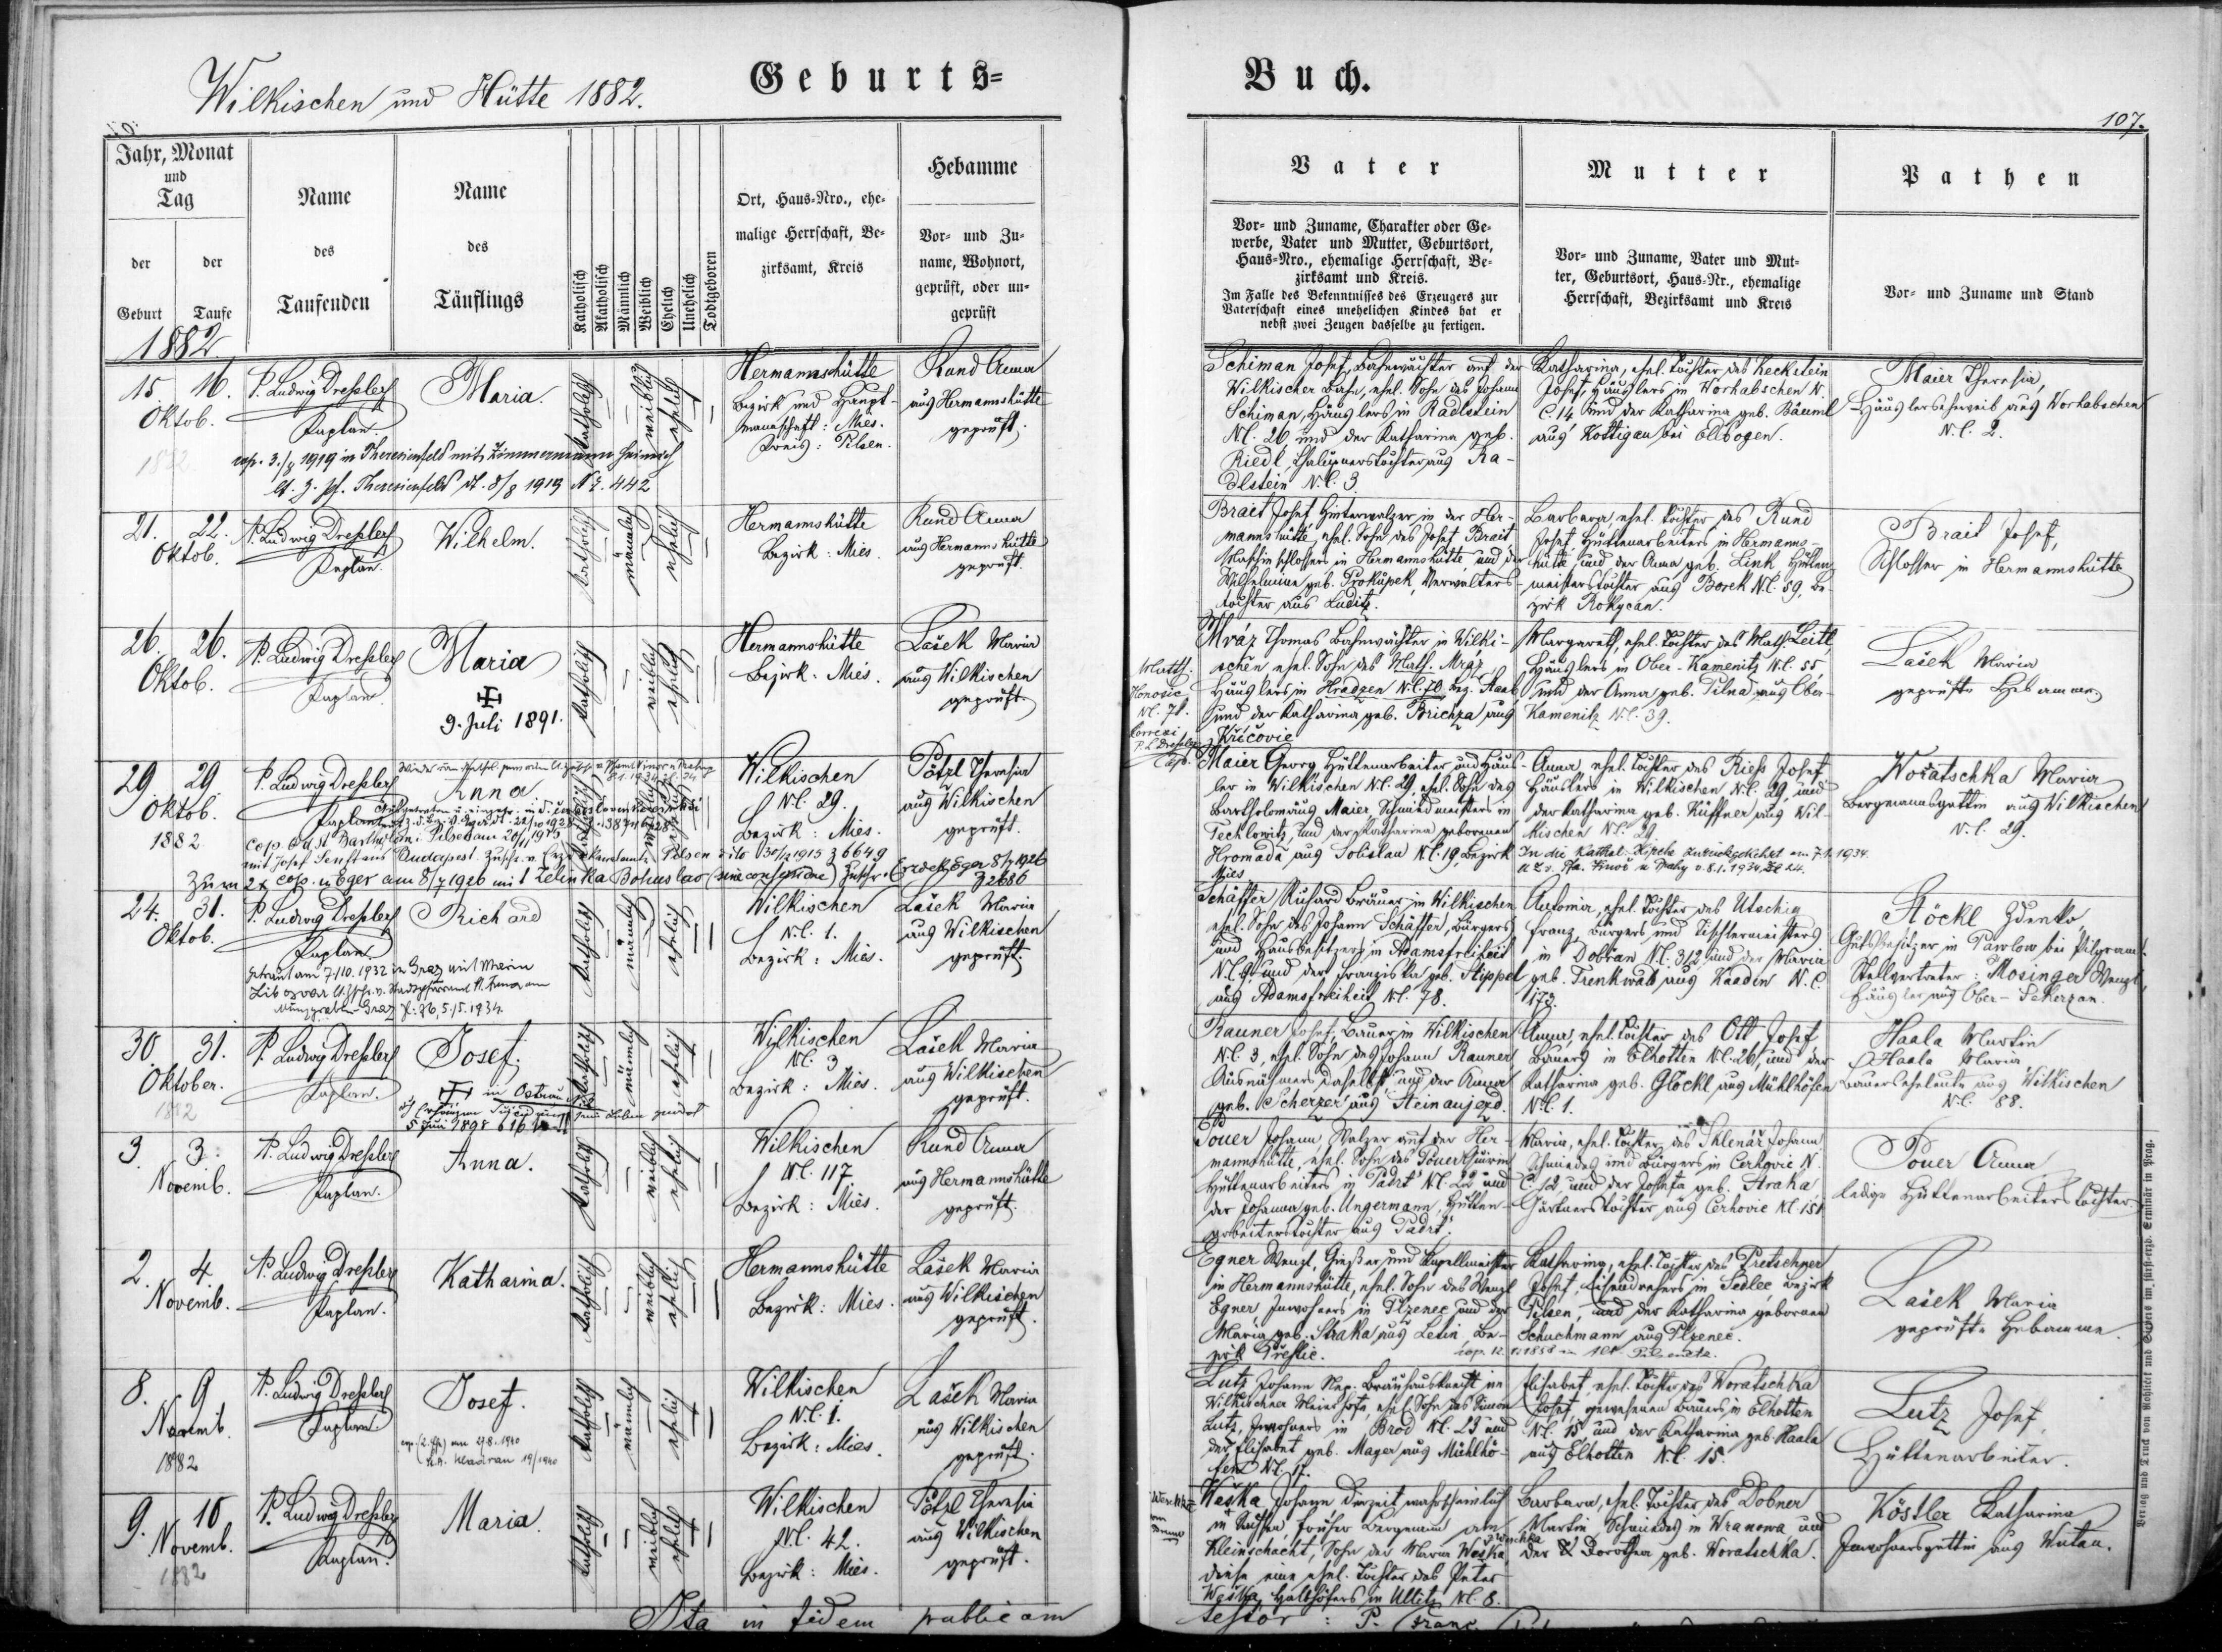 Wilkischen und Hütte 1882.
Geburts=
Jahr, Monat
und
Tag
der
Geburt
der
Taufe
Name
des
Taufenden
Name
des
Täuflings
Katholisch
Akatholisch
Männlich
Weiblich
Ehelich
Unehelich
Todtgeboren
Ort, Haus=Nro., ehe=
malige Herrschaft, Be=
zirksamt, Kreis
Hebamme
Vor= und Zu=
name, Wohnort,
geprüft, oder un=
geprüft
1882
15. 16.
Oktob.
P. Ludwig Dressler
Kaplan
Maria.
katholisch
weiblich
ehelich
Hermannshütte
Bezirk und Haupt-
mannschaft: Mies.
Kreis: Pilsen.
Rund Anna
aus Hermannshütte
geprüft.
cop. 3./8 1919 in Theresienfeld mit Zimmermann Heinrich
Theresienfeld 8/8 1919 N. 442
21. 22.
Oktob.
P. Ludwig Dressler
Kaplan.
Wilhelm.
katholisch
männlich
ehelich
Hermannshütte
Bezirk: Mies
Rund Anna
aus Hermannshütte
geprüft.
26. 26.
Oktob.
P. Ludwig Dressler
Kaplan
Maria
9. Juli 1891.
katholisch
weiblich
ehelich
Hermannshütte
Bezirk: Mies.
Lašek Maria
aus Wilkischen
geprüft.
29 29
Oktob.
1882
P. Ludwig Dressler
Kaplan
Anna
Wilkischen
N.C. 29.
Bezirk: Mies.
Pötzl Theresia
aus Wilkischen
geprüft.
cop. St. Barthol. Pilsen am 20/11 1915
mit Josef Senft aus Budapest.
Zum 2x cop. in Eger am 8/7 1926 mit Zelinka Bohuslav
24. 31.
Oktob.
P. Ludwig Dressler
Kaplan
Richard
katholisch
männlich
ehelich
Wilkischen
N.C. 1.
Bezirk: Mies.
Lašek Maria
aus Wilkischen
geprüft.
Getraut am 7/10. 1932 in Graz mit Maria
30. 31.
Oktober.
1882
P. Ludwig Dressler
Kaplan.
Josef.
in Ostrau
5 Juni 1898
katholisch
männlich
ehelich
Wilkischen
N.C. 3
Bezirk: Mies.
Lašek Maria
aus Wilkischen
geprüft.
3. 3.
Novemb.
P. Ludwig Dressler
Kaplan.
Anna.
katholisch
weiblich
ehelich
Wilkischen
N.C. 117.
Bezirk: Mies.
Rund Anna
aus Hermannshütte
geprüft.
2. 4.
Novemb.
P. Ludwig Dressler
Kaplan.
Katharina.
katholisch
weiblich
ehelich
Hermannshütte
Bezirk: Mies.
Lašek Maria
aus Wilkischen
geprüft.
8. 9
Novemb.
1882
P. Ludwig Dressler
Kaplan
Josef.
katholisch
männlich
ehelich
Wilkischen
N.C. 1.
Bezirk: Mies.
Lašek Maria
aus Wilkischen
geprüft.
9. 10
Novemb.
1882
P. Ludwig Dressler
Kaplan.
Maria.
katholisch
weiblich
ehelich
Wilkischen
N.C. 42.
Bezirk: Mies.
Pötzl Theresia
aus Wilkischen
geprüft.
Ita in fidem publicam
Buch.
107.
Vater
Vor= und Zuname, Charakter oder Ge=
werbe, Vater und Mutter, Geburtsort,
Haus=Nro., ehemalige Herrschaft, Be=
zirksamt und Kreis.
Im Falle des Bekenntnisses des Erzeugers zur
Vaterschaft eines unehelichen Kindes hat er
nebst zwei Zeugen dasselbe zu fertigen.
Mutter
Vor= und Zuname, Vater und Mut=
ter, Geburtsort, Haus=Nr., ehemalige
Herrschaft, Bezirksamt und Kreis
Pathen
Vor= und Zuname und Stand
Schiman Josef, Bahnwächter auf der
Wilkischer Bahn, ehel. Sohn des Johann
Schiman, Häuslers in Radlstein
N.C. 26 und der Katharina geb.
Riedl, Chalupnerstochter aus Ra-
dlstein N.C. 3.
Katharina, ehel. Tochter des Keckstein
Josef, Häuslers in Worhabschen N.
C. 14 und der Katharina geb. Bäuml
aus Kottigau bei Ellbogen.
Maier Theresia,
Häuslerseheweib aus Worhabschen
N.C. 2.
Brait Josef Hinterwalzer in der Her-
mannshütte, ehel. Sohn des Josef Brait
Maschinschlossers in Hermannshütte und der
Wilhelmine geb. Prokupek, Verwalters-
tochter aus Luditz.
Barbara, ehel. Tochter des Rund
Josef Hüttenarbeiters in Hermanns-
hütte und der Anna geb. Link Hütten-
meisterstochter aus Borek N.C. 59, Be-
zirk Rokycan.
Brait Josef,
Schlosser in Hermannshütte
Mráz Thomas Bahnwächter in Wilki-
schen ehel. Sohn des Math. Mraz
Häuslers in Hradzen N.C. 70 Bez. Staab
und der Katharina geb. Brichza aus
Křičovic
Margareth, ehel. Tochter des Math. Leitl,
Häuslers in Ober-Kamenitz N.C. 55,
und der Anna geb. Pilna aus Ober-
Kamenitz N.C. 39.
Lašek Maria
geprüfte Hebamme
Maier Georg Hüttenarbeiter und Häus-
ler in Wilkischen N.C. 29, ehel. Sohn des
Bartholomäus Maier, Schmiedmeisters in
Techlowitz und der Katharina geborenen
Hromada aus Solislau N.C. 19, Bezirk
Mies
Anna, ehel. Tochter des Riess Josef
Häuslers in Wilkischen N.C. 29, und
der Katharina geb. Küffner aus Wil-
kischen N.C. 29.
In die kathol. Kirche zurückgekehrt am 7.1. 1934.
Woratschka Maria
Bergmannsgattin aus Wilkischen
N.C. 29.
Schäffer Richard Bräuer in Wilkischen
ehel. Sohn des Johann Schäffer, Bürgers
und Hausbesitzers in Adamsfreiheit
N.C. 9, und der Franziska geb. Stippel
aus Adamsfreiheit N.C. 78.
Antonia, ehel. Tochter des Utschig
Franz, Bürgers und Tischlermeisters
in Dobřan N.C. 312 und der Maria
geb. Trenkwald aus Kaaden N.C.
173.
Stöckl Zdenko,
Gutsbesitzer in Pawlow bei Pilgram.
Stellvertreter: Mosinger Wenzl,
Häusler aus Ober-Sekerzan.
Rauner Josef, Bauer in Wilkischen
N.C. 3, ehel. Sohn des Johann Rauner
Ausnähmers daselbst und der Anna
geb. Scherzer aus Steinaujezd.
Anna, ehel. Tochter des Ott Josef,
Bauers in Elhotten N.C. 26, und der
Katharina geb. Glöckl aus Mühlhöfen
N.C. 1.
Haala Martin
Haala Maria
Bauerseheleute aus Wilkischen
N.C. 88.
Pouer Johann, Walzer auf der Her-
mannshütte, ehel. Sohn des Pouer
Hüttenarbeiters in Padrt N.C. 22 und
der Johanna geb. Ungermann, Hütten-
arbeiterstochter aus Padrt.
Maria, ehel. Tochter des Sklenář Johann
Schmiedes und Bürgers in Cerhovic N.
C. 12 und der Josefa geb. Straka
Gärtnerstochter aus Cerhovic N.C. 151
Pouer Anna
ledige Hüttenarbeiterstochter.
Egner Wenzl, Gießer und Kapellmeister
in Hermannshütte, ehel. Sohn des Wenzl
Egner Inwohners in Plzenec und der
Maria geb. Straka aus Letin, Be-
zirk Přestic.
Katharina, ehel. Tochter des Pretschner
Josef, Eisendrehers in Sedlec, Bezirk
Pilsen, und der Katharina geborenen
Schuchmann aus Plzenec.
Lašek Maria
geprüfte Hebamme.
Lutz Johann Nep. Bräuhausknecht im
Wilkischner Maierhofe, ehel. Sohn des Simon
Lutz, Inwohners in Brod N.C. 23 und
der Elisabet geb. Mayer aus Mühlhö-
fen N.C. 17.
Elisabet, ehel. Tochter des Woratschka
Josef gewesenen Bauers in Elhotten
N.C. 15 und der Katharina geb. Haala
aus Elhotten N.C. 15.
Lutz Josef,
Hüttenarbeiter.
Waška Johann derzeit wahrscheinlich
in Sachsen, früher Bergmann am
Kleinschacht, Sohn der Maria Waška,
diese eine ehel. Tochter des Peter
Waška, Halbhöfers in Ullitz N.C. 8.
Barbara, ehel. Tochter des Dobner
Martin Schmiedes in Wranowa und
der Dorothea geb. Woratschka.
Köstler Katharina
Inwohnersgattin aus Wuttau.
testor: P. Franc